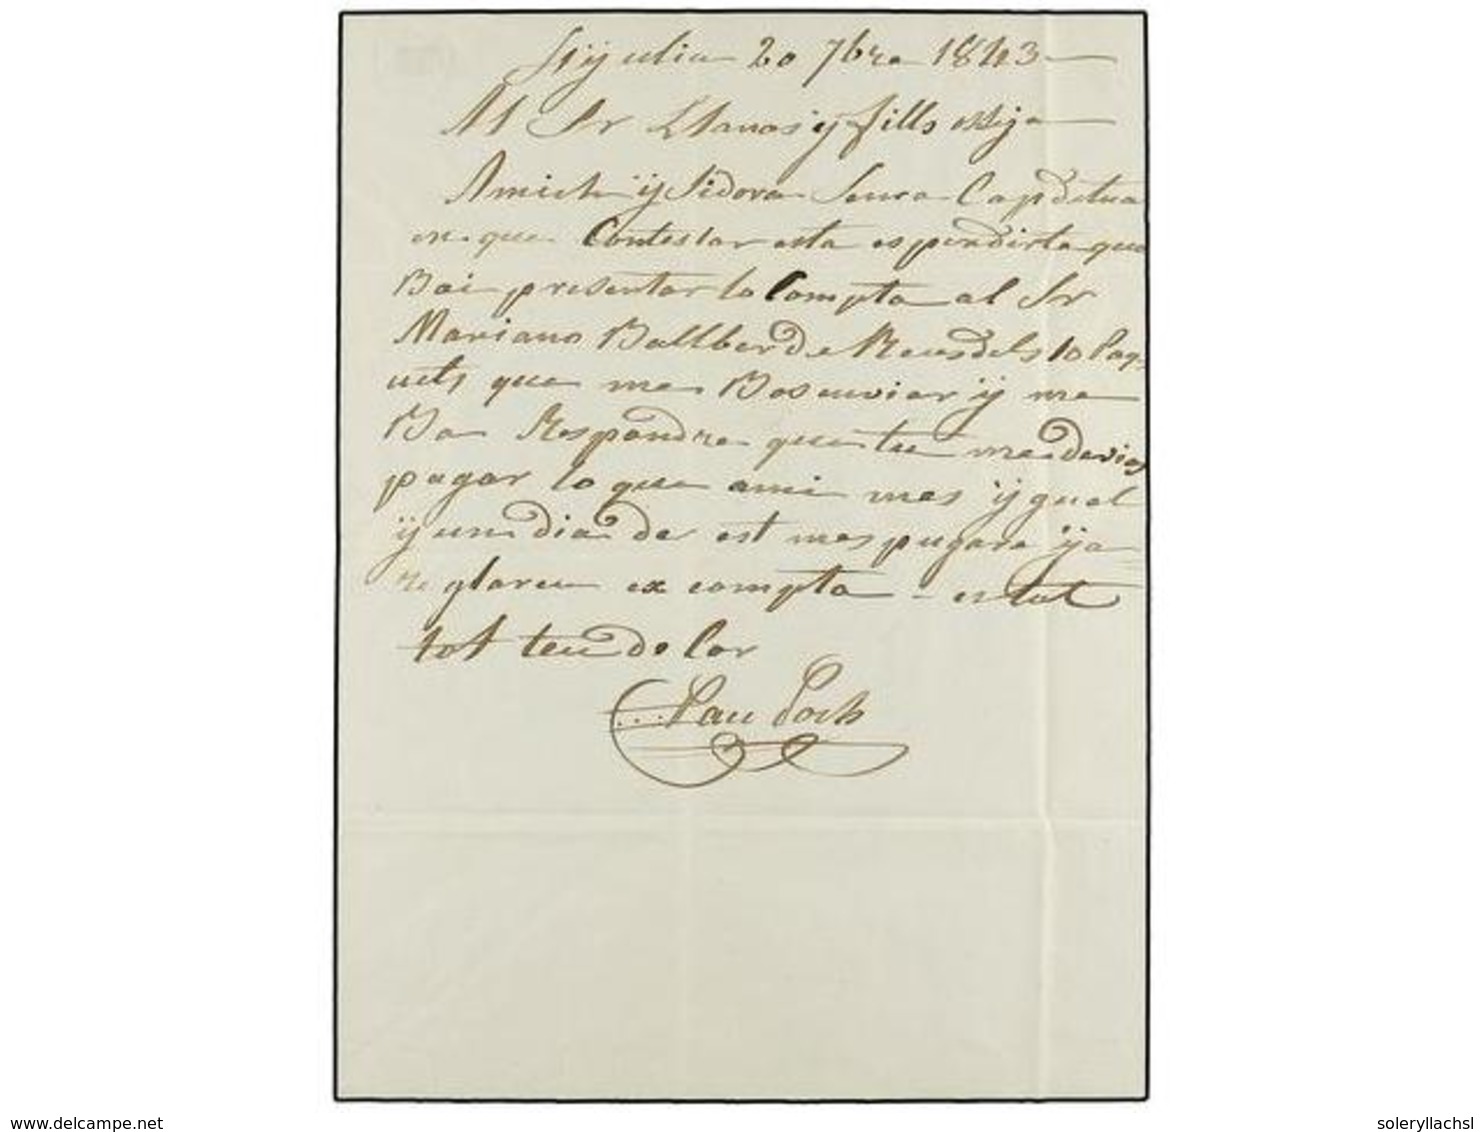 20 7bre 1843
Al Sr Llanos y fills
Amich y Sidora Capdetua
en que Contestar esta es perdirte que
Bai presentar lo Compta al Sr
Mariano Ballber de Reus dels 10 Paq
uets que me Bos enviar y me
Ba Respondre que tu me devias
pagar lo que ami mes y gual
y un dia de est mes pugare y a
re glareu ex compta - es tot
tot teu de Cor
Pau Poch
www.delcampe.net
soleryllach.sl